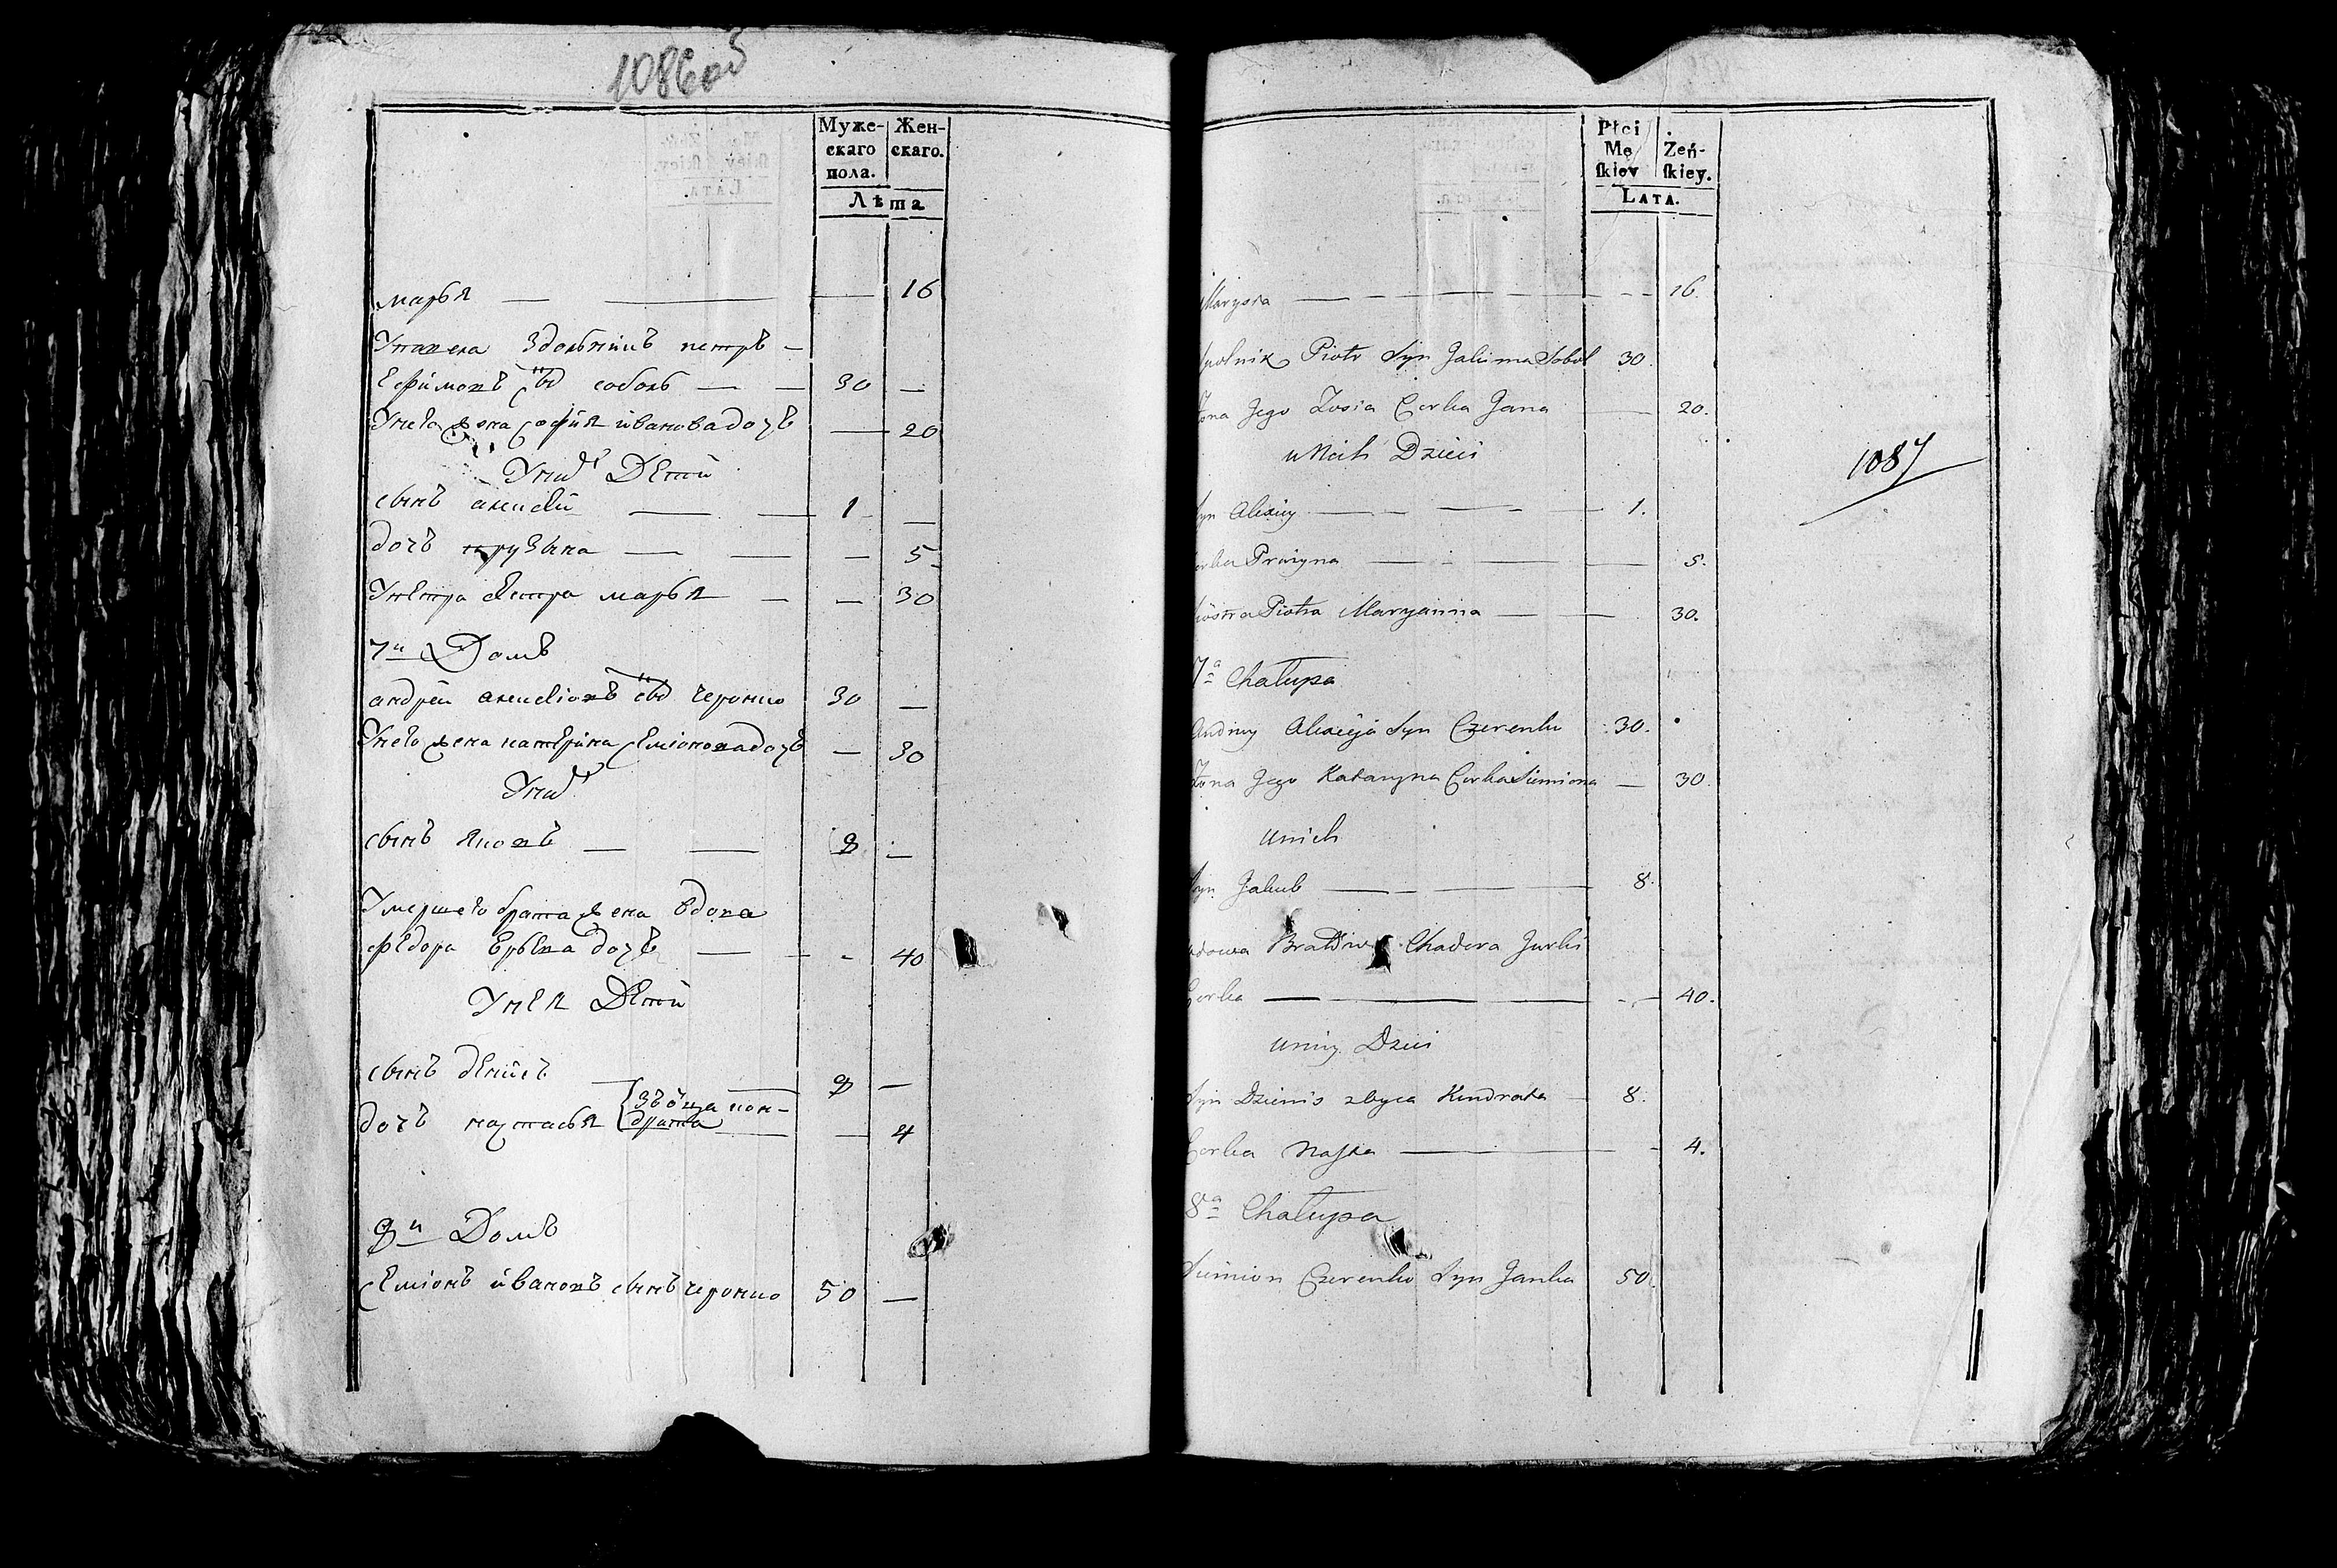 1086об
Муже-
скаго
пола.
Жен-
скаго.
Лѣта
марья 16
Упавела Здольникъ петръ
Ефимовъ сынъ соболь 30
Унего жена софия ивановадочь 20
Уних Дети
сынъ алексѣй 1
дочь прузына 5
Упетра сестра марья 30
7й Домъ
андрей алексѣевъ сынъ черенко 30
Унего жена катерина семионовадочь 30
Уних
сынъ яковъ 8
Умершего брата жена вдова
федора юрьева дочь 40
Унея Дети
сынъ денисъ 8
зъ отца кон-
драта
дочь настасья 4
8й Домъ
семионъ ивановъ сынъ черенко 50
Płci
Mę
ſkiey
Żeń-
ſkiey.
LATA.
Marysia 16.
Spolnik Piotr Syn Jakima Sobol 30.
Żona Jego Zosia Corka Jana 20.
u Nich Dzieci
Syn Alexiy 1.
Corka Pruzyna 5.
Siostra Piotra Maryanna 30.
7a Chałupa
Andrey Alexieja Syn Czerenko 30.
Żona Jego Katarzyna Corka Siemiona 30.
u nich
Syn Jakub 8.
wdowa Chadora Jurki
Corka 40.
u niey Dzieci
Syn Dzienis z oyca Kondrata 8.
Corka Nasta 4.
8a Chałupa
Siemion Czerenko Syn Janka 50.
1087